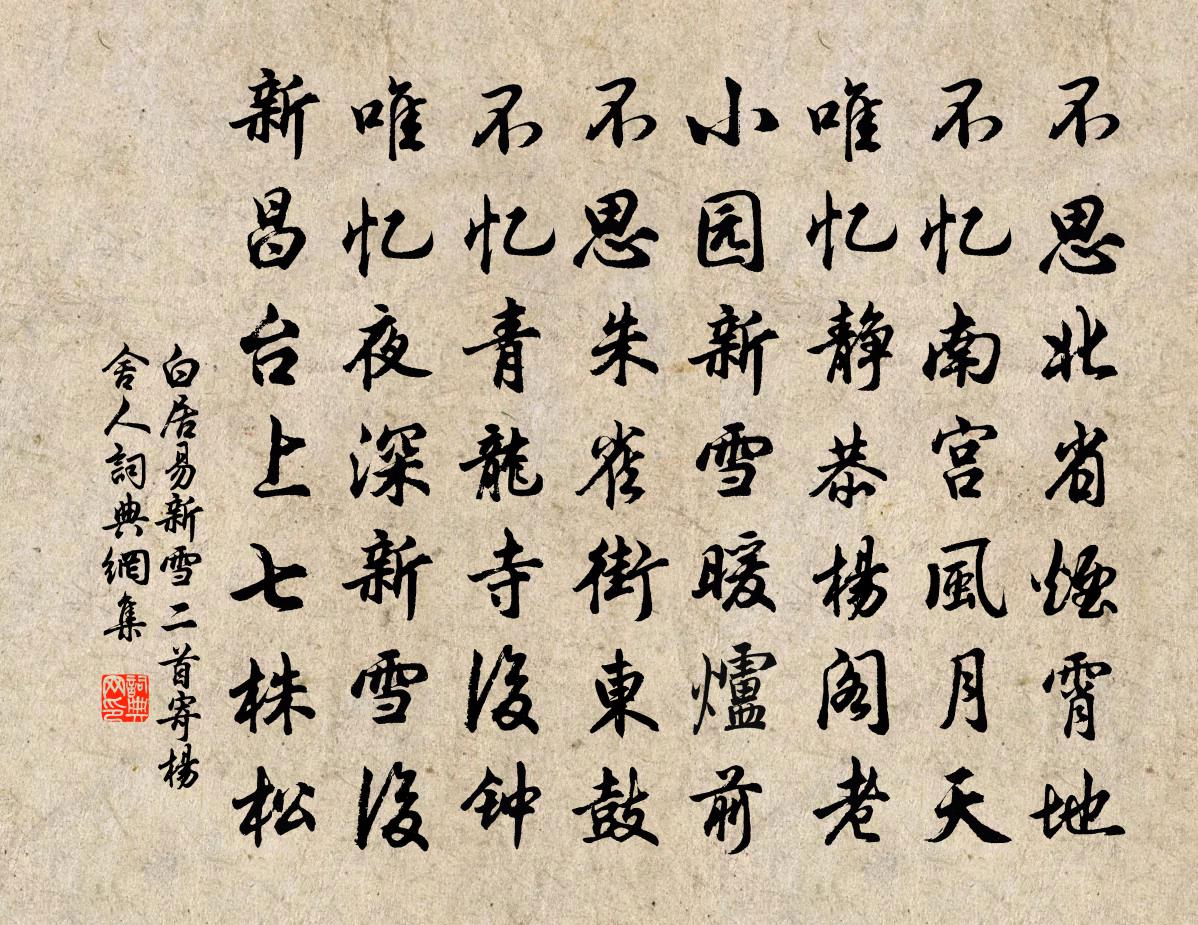 不思北省煙霄地
不忆南宫風月天
唯忆静恭楊阁老
小园新雪暖爐前
不思朱雀街東鼓
不忆青龍寺後钟
唯忆夜深新雪後
新昌台上七株松
白居易新雪二首寄楊
舍人詞典網集
詞典
网印